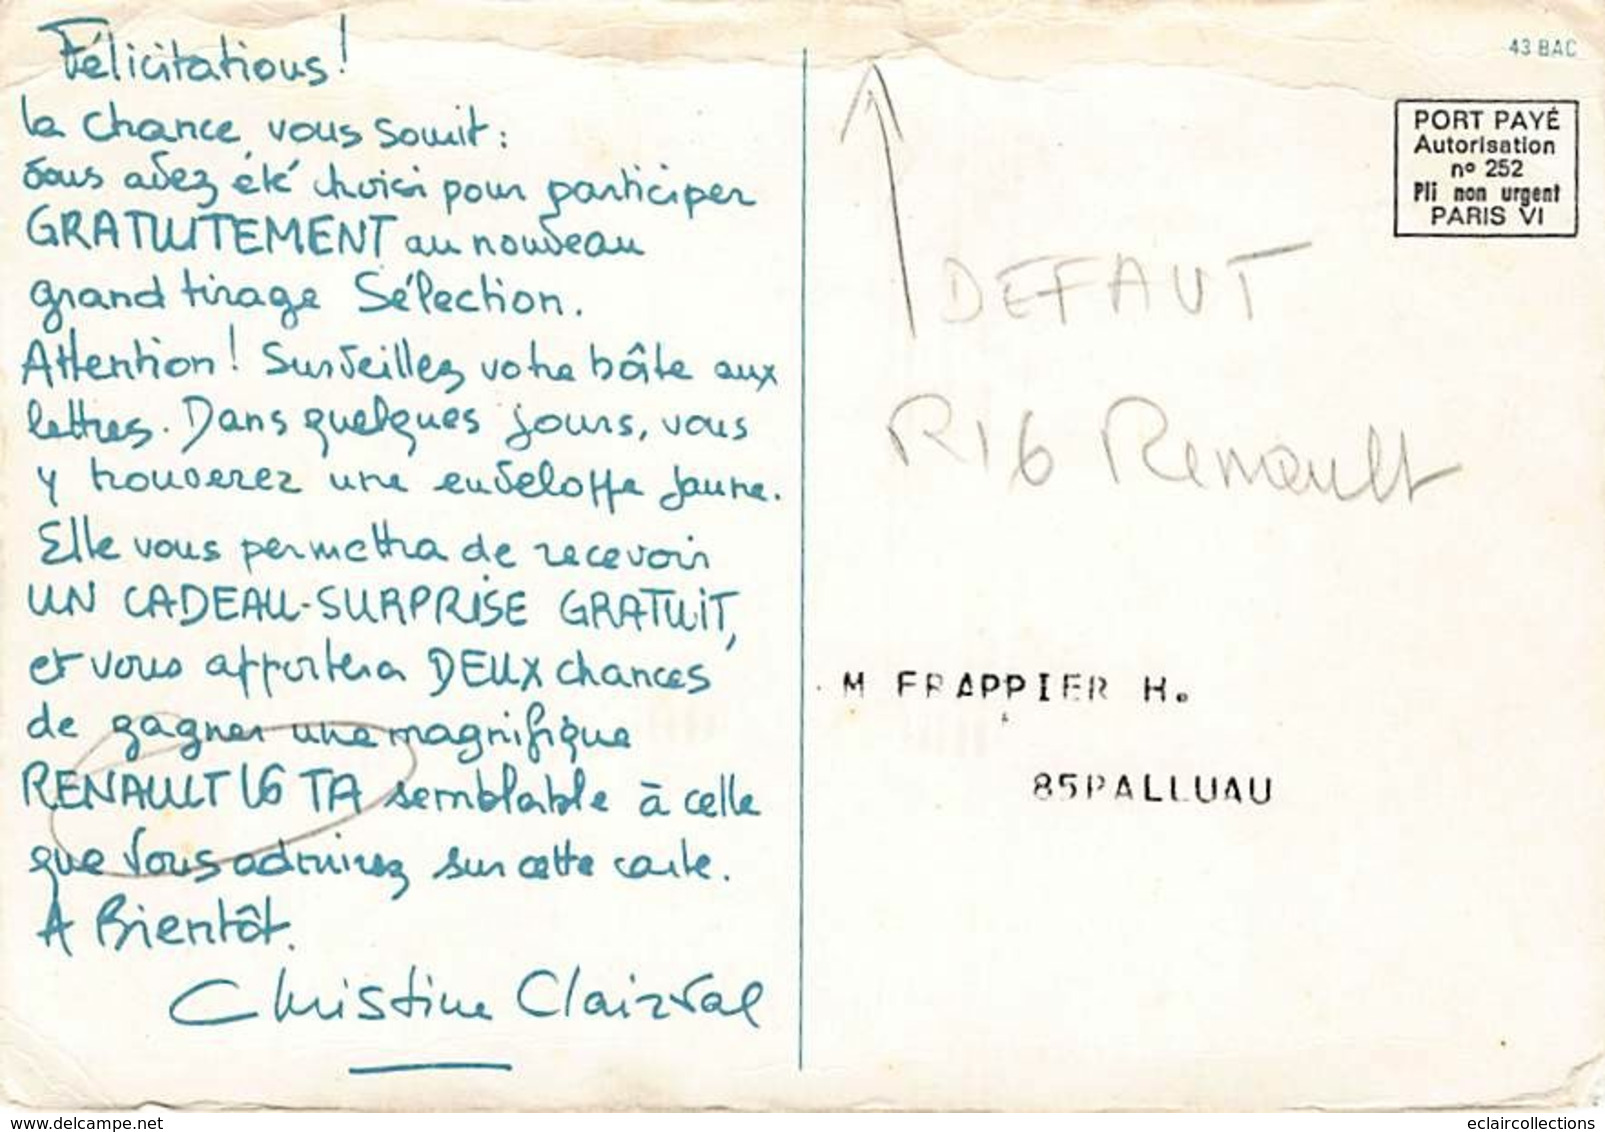 Félicitations!
la chance vous sourit:
vous avez été choisi pour participer
GRATUITEMENT au nouveau
grand tirage Sélection.
Attention! Surveillez votre boîte aux
lettres. Dans quelques jours, vous
y trouverez une enveloppe jaune.
Elle vous permettra de recevoir
UN CADEAU-SURPRISE GRATUIT,
et vous apportera DEUX chances
de gagner une magnifique
RENAULT 16 TA semblable à celle
que vous admirez sur cette carte.
A Bientôt.
Christine Clairval
43 BAC
PORT PAYÉ
Autorisation
nº 252
Pli non urgent
PARIS VI
DEFAUT
R16 Renault
M FRAPPIER H.
85PALLUAU
delcampe.net
eclaircollections